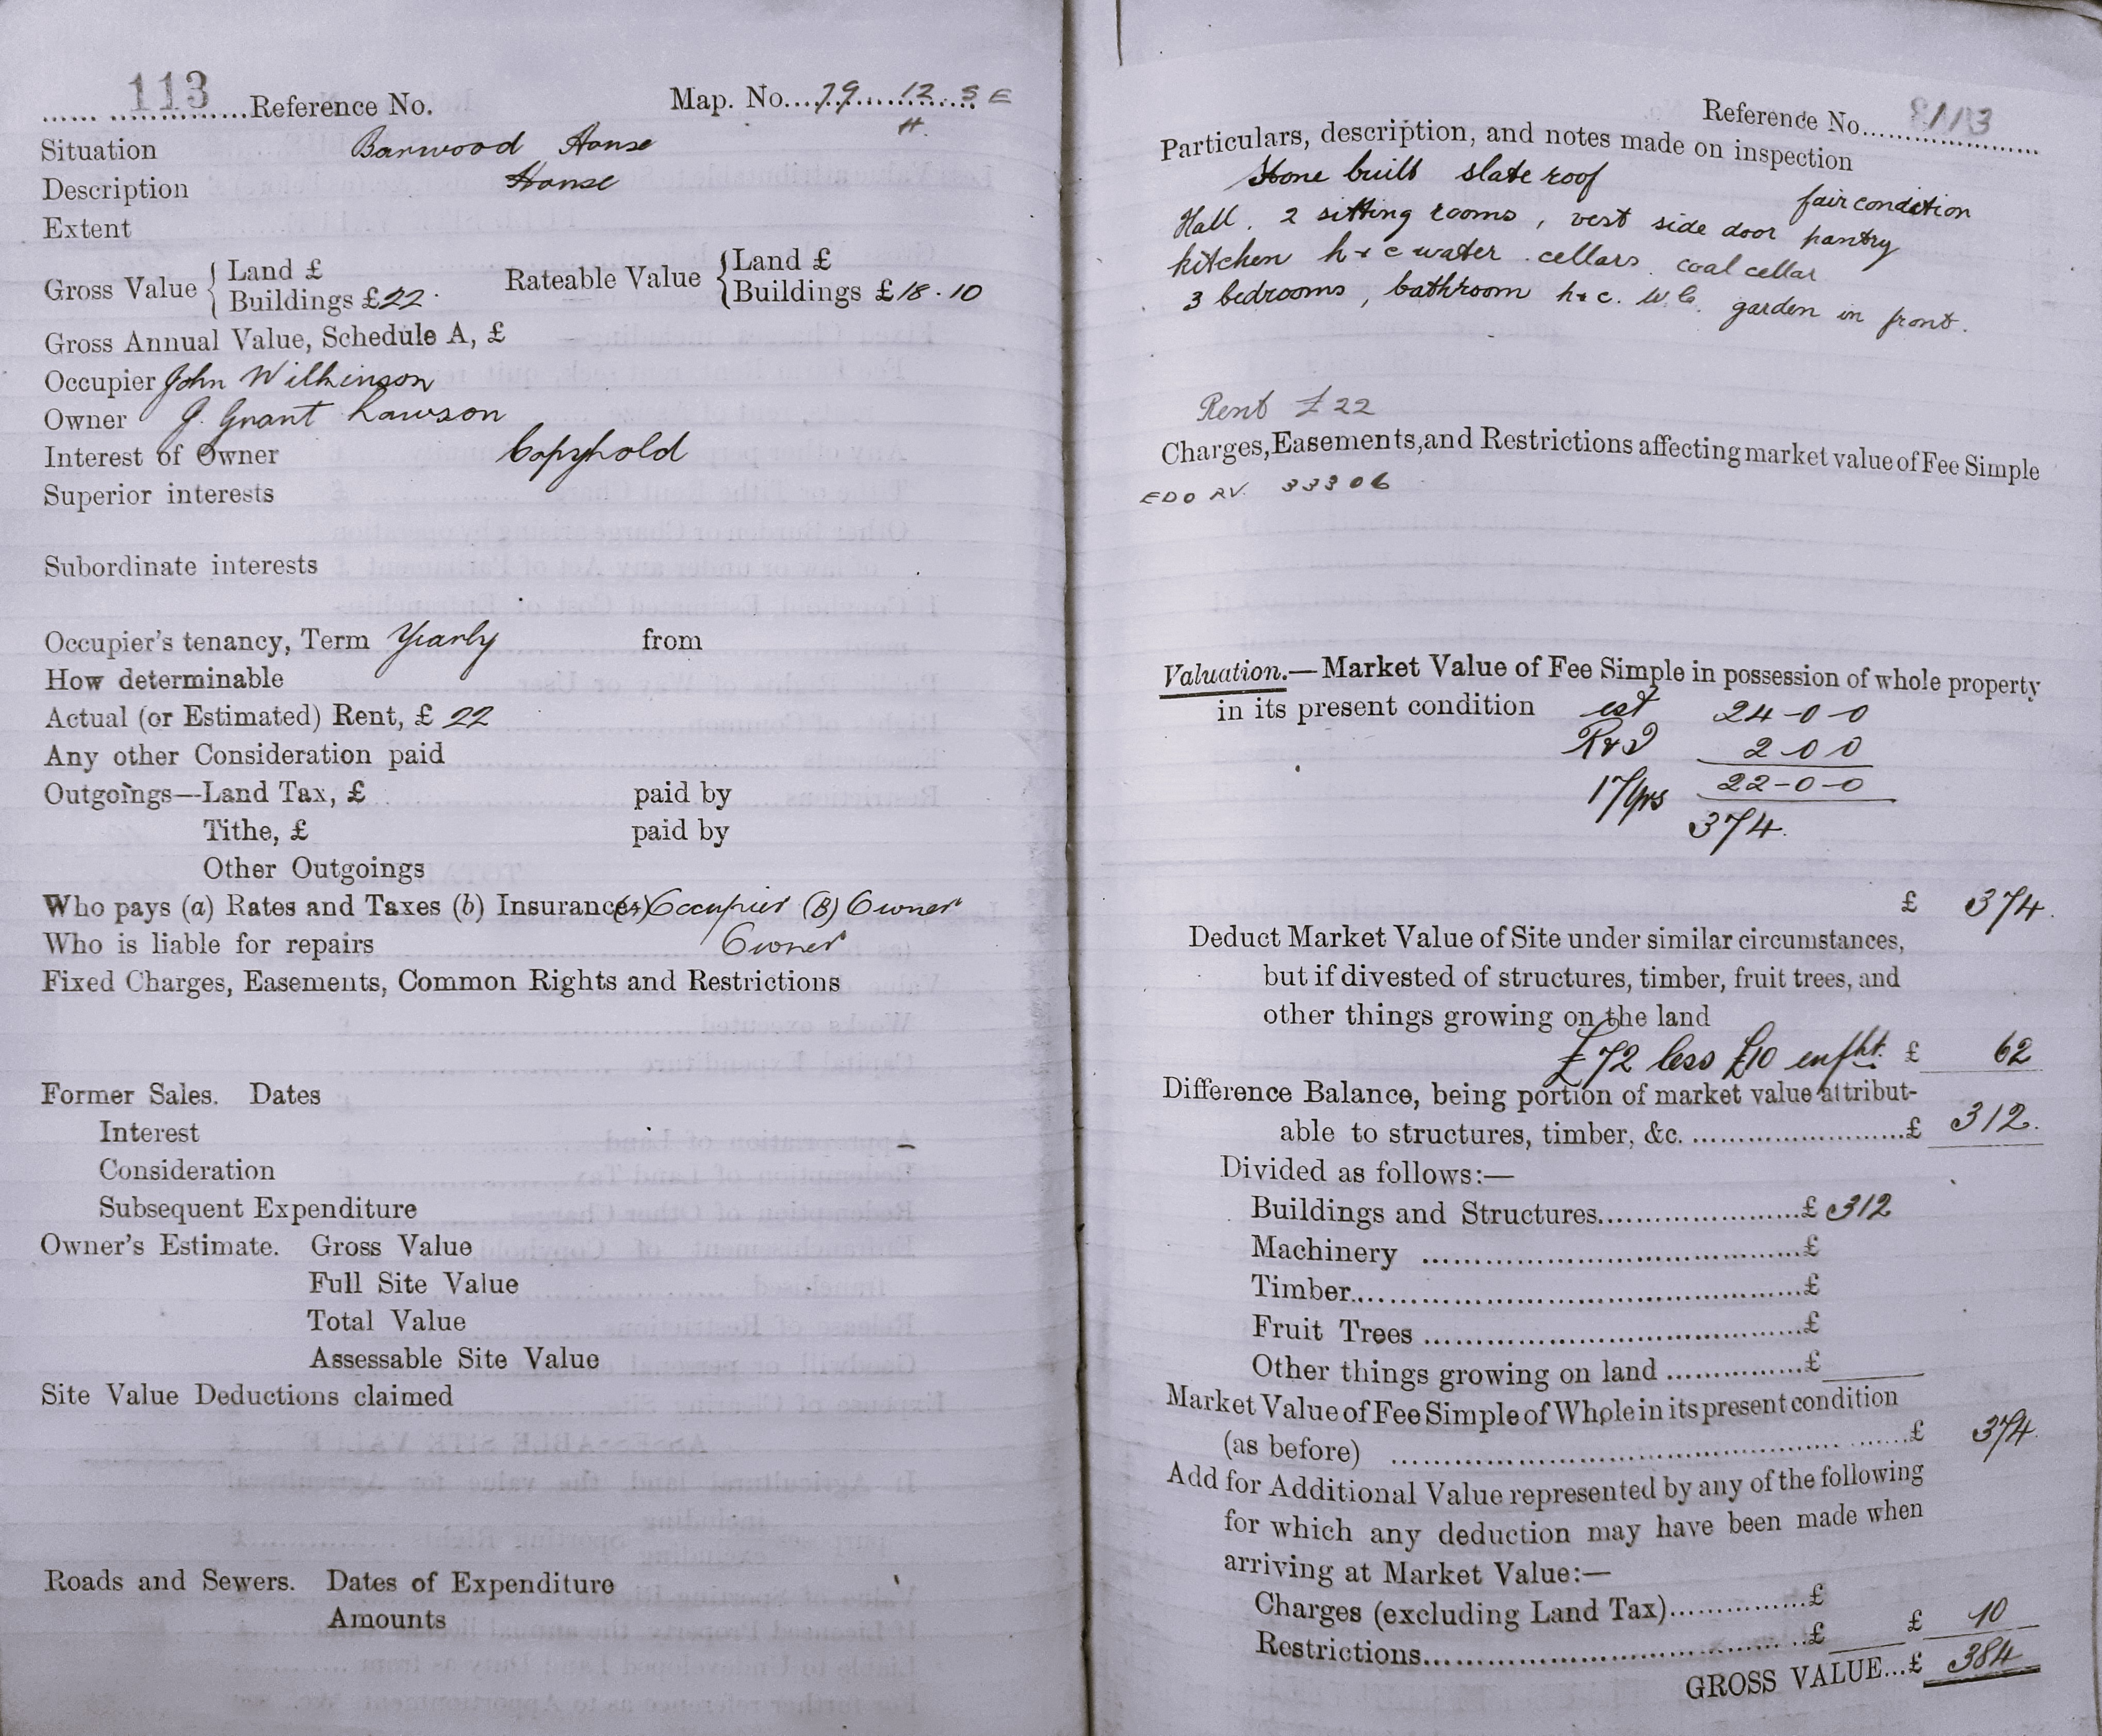 113 Reference No. Map. No. 79 12 SE
H.
Situation Barwood House
Description House
Extent
Gross Value { Land £ Rateable Value { Land £
Buildings £22. Buildings £18.10
Gross Annual Value, Schedule A, £
Occupier John Wilkinson
Owner J. Grant Lawson
Interest of Owner Copyhold
Superior interests
Subordinate interests
Occupier's tenancy, Term Yearly from
How determinable
Actual (or Estimated) Rent, £ 22
Any other Consideration paid
Outgoings—Land Tax, £ paid by
Tithe, £ paid by
Other Outgoings
Who pays (a) Rates and Taxes (b) Insurance (a) Occupier (B) Owner
Who is liable for repairs Owner
Fixed Charges, Easements, Common Rights and Restrictions
Former Sales. Dates
Interest
Consideration
Subsequent Expenditure
Owner's Estimate. Gross Value
Full Site Value
Total Value
Assessable Site Value
Site Value Deductions claimed
Roads and Sewers. Dates of Expenditure
Amounts
Reference No. 113
Particulars, description, and notes made on inspection
Stone built slate roof fair condition
Hall, 2 sitting rooms, vest side door pantry
kitchen h + c water. cellars. coal cellar
3 bedrooms, bathroom h + c. W.C. garden in front.
Rent £22
Charges, Easements, and Restrictions affecting market value of Fee Simple
EDO RV. 33306
Valuation.—Market Value of Fee Simple in possession of whole property
in its present condition est 24-0-0
R+I 2 0 0
17yrs 22-0-0
374.
£ 374.
Deduct Market Value of Site under similar circumstances,
but if divested of structures, timber, fruit trees, and
other things growing on the land
£72 less £10 enfht. £ 62
Difference Balance, being portion of market value attribut-
able to structures, timber, &c. £ 312.
Divided as follows:—
Buildings and Structures £ 312
Machinery £
Timber £
Fruit Trees £
Other things growing on land £
Market Value of Fee Simple of Whole in its present condition
(as before) £ 374.
Add for Additional Value represented by any of the following
for which any deduction may have been made when
arriving at Market Value:—
Charges (excluding Land Tax) £
Restrictions £ £ 10
GROSS VALUE...£ 384